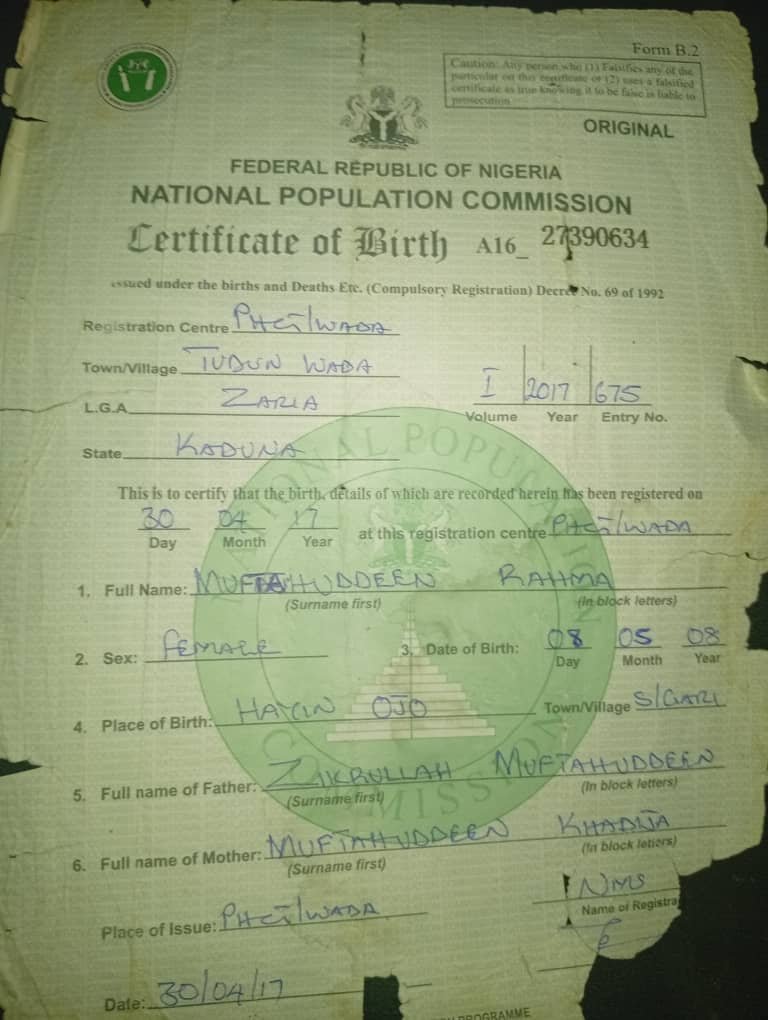 Form B.2
Caution: Any person who (1) Falsifies any of the
particular on this certificate or (2) uses a falsified
certificate as true knowing it to be false is liable to
prosecution
ORIGINAL
FEDERAL REPUBLIC OF NIGERIA
NATIONAL POPULATION COMMISSION
Certificate of Birth A16_ 27390634
issued under the births and Deaths Etc. (Compulsory Registration) Decree No. 69 of 1992
Registration Centre
Town/Village TUDUN WADA
L.G.A. ZARIA
I 2017 675
Volume Year Entry No.
State KADUNA
This is to certify that the birth, details of which are recorded herein has been registered on
30 04 17 at this registration centre
Day Month Year
1. Full Name: MUFTAHUDDEEN RAHMA
(Surname first) (In block letters)
2. Sex: FEMALE 3. Date of Birth: 08 05 08
Day Month Year
4. Place of Birth: HAYIN OJO Town/Village S/GARI
5. Full name of Father: ZIKRULLAH MUFTAHUDDEEN
(Surname first) (In block letters)
6. Full name of Mother: MUFTAHUDDEEN KHADIJA
(Surname first) (In block letters)
Place of Issue:
Name of Registra
Date: 30/04/17
PROGRAMME
NATIONAL POPULATION
COMMISSION